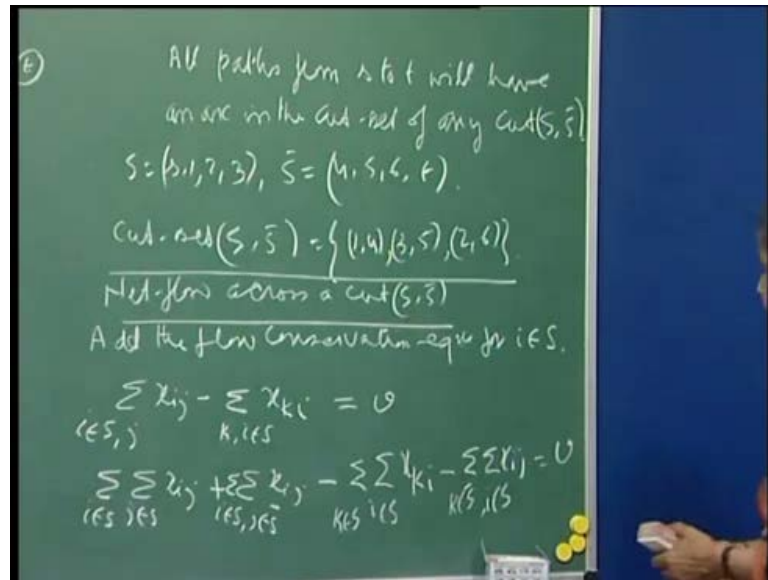 t
All paths from s to t will have
an arc in the cut-set of any cut(S, S̄)
S = (s,1,2,3), S̄ = (4,5,6,t).
Cut-set(S, S̄) = {(1,4),(3,5),(2,6)}
Net-flow across a cut(S, S̄)
Add the flow conservation eqns for i∈S.
Σ xij - Σ xki = v
i∈S,j k,i∈S
ΣΣ xij + ΣΣ xij - ΣΣ xki - ΣΣ xij = v
i∈S j∈S i∈S, j∈S̄ k∈S i∈S